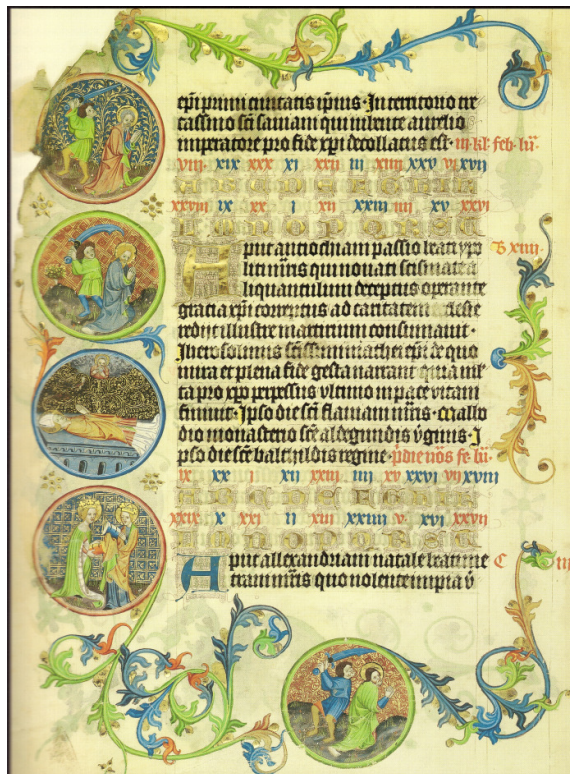 epi primi ciuitatis ipius · In territorio tre
cassino sci sauiani qui iubente aurelio
imperatore pro fide xpi decollatus est · iii · kl · feb · lu
viii xix xxx xi xxii iii xiiii xxv vi xvii
xxviii ix xx i xii xxiii iiii xv xxvi
Aput antiochiam passio beati ypo B xiiii
liti mris qui nouati scismate a
liquantulum deceptus operante
gracia xpi correctus ad caritatem ecclesie
rediit illustre martirium consumauit ·
Iherosolimis sci mathei epi de quo
mira et plena fide gesta narrant quia mul
ta pro xpo perpessus ultimo in pace uitam
finiuit · Ipso die sci flauiani mris · mallo
dio monasterio sce aldegundis uginis · I
pso die sce baltildis regine · pdie nos fe lu
ix xx i xii xxiii iiii xv xxvi vii xviii
xxix x xxi ii xiii xxiiii v xvi xxvii
Aput allexandriam natale beati me C iii
trani mris quo nolente impia u